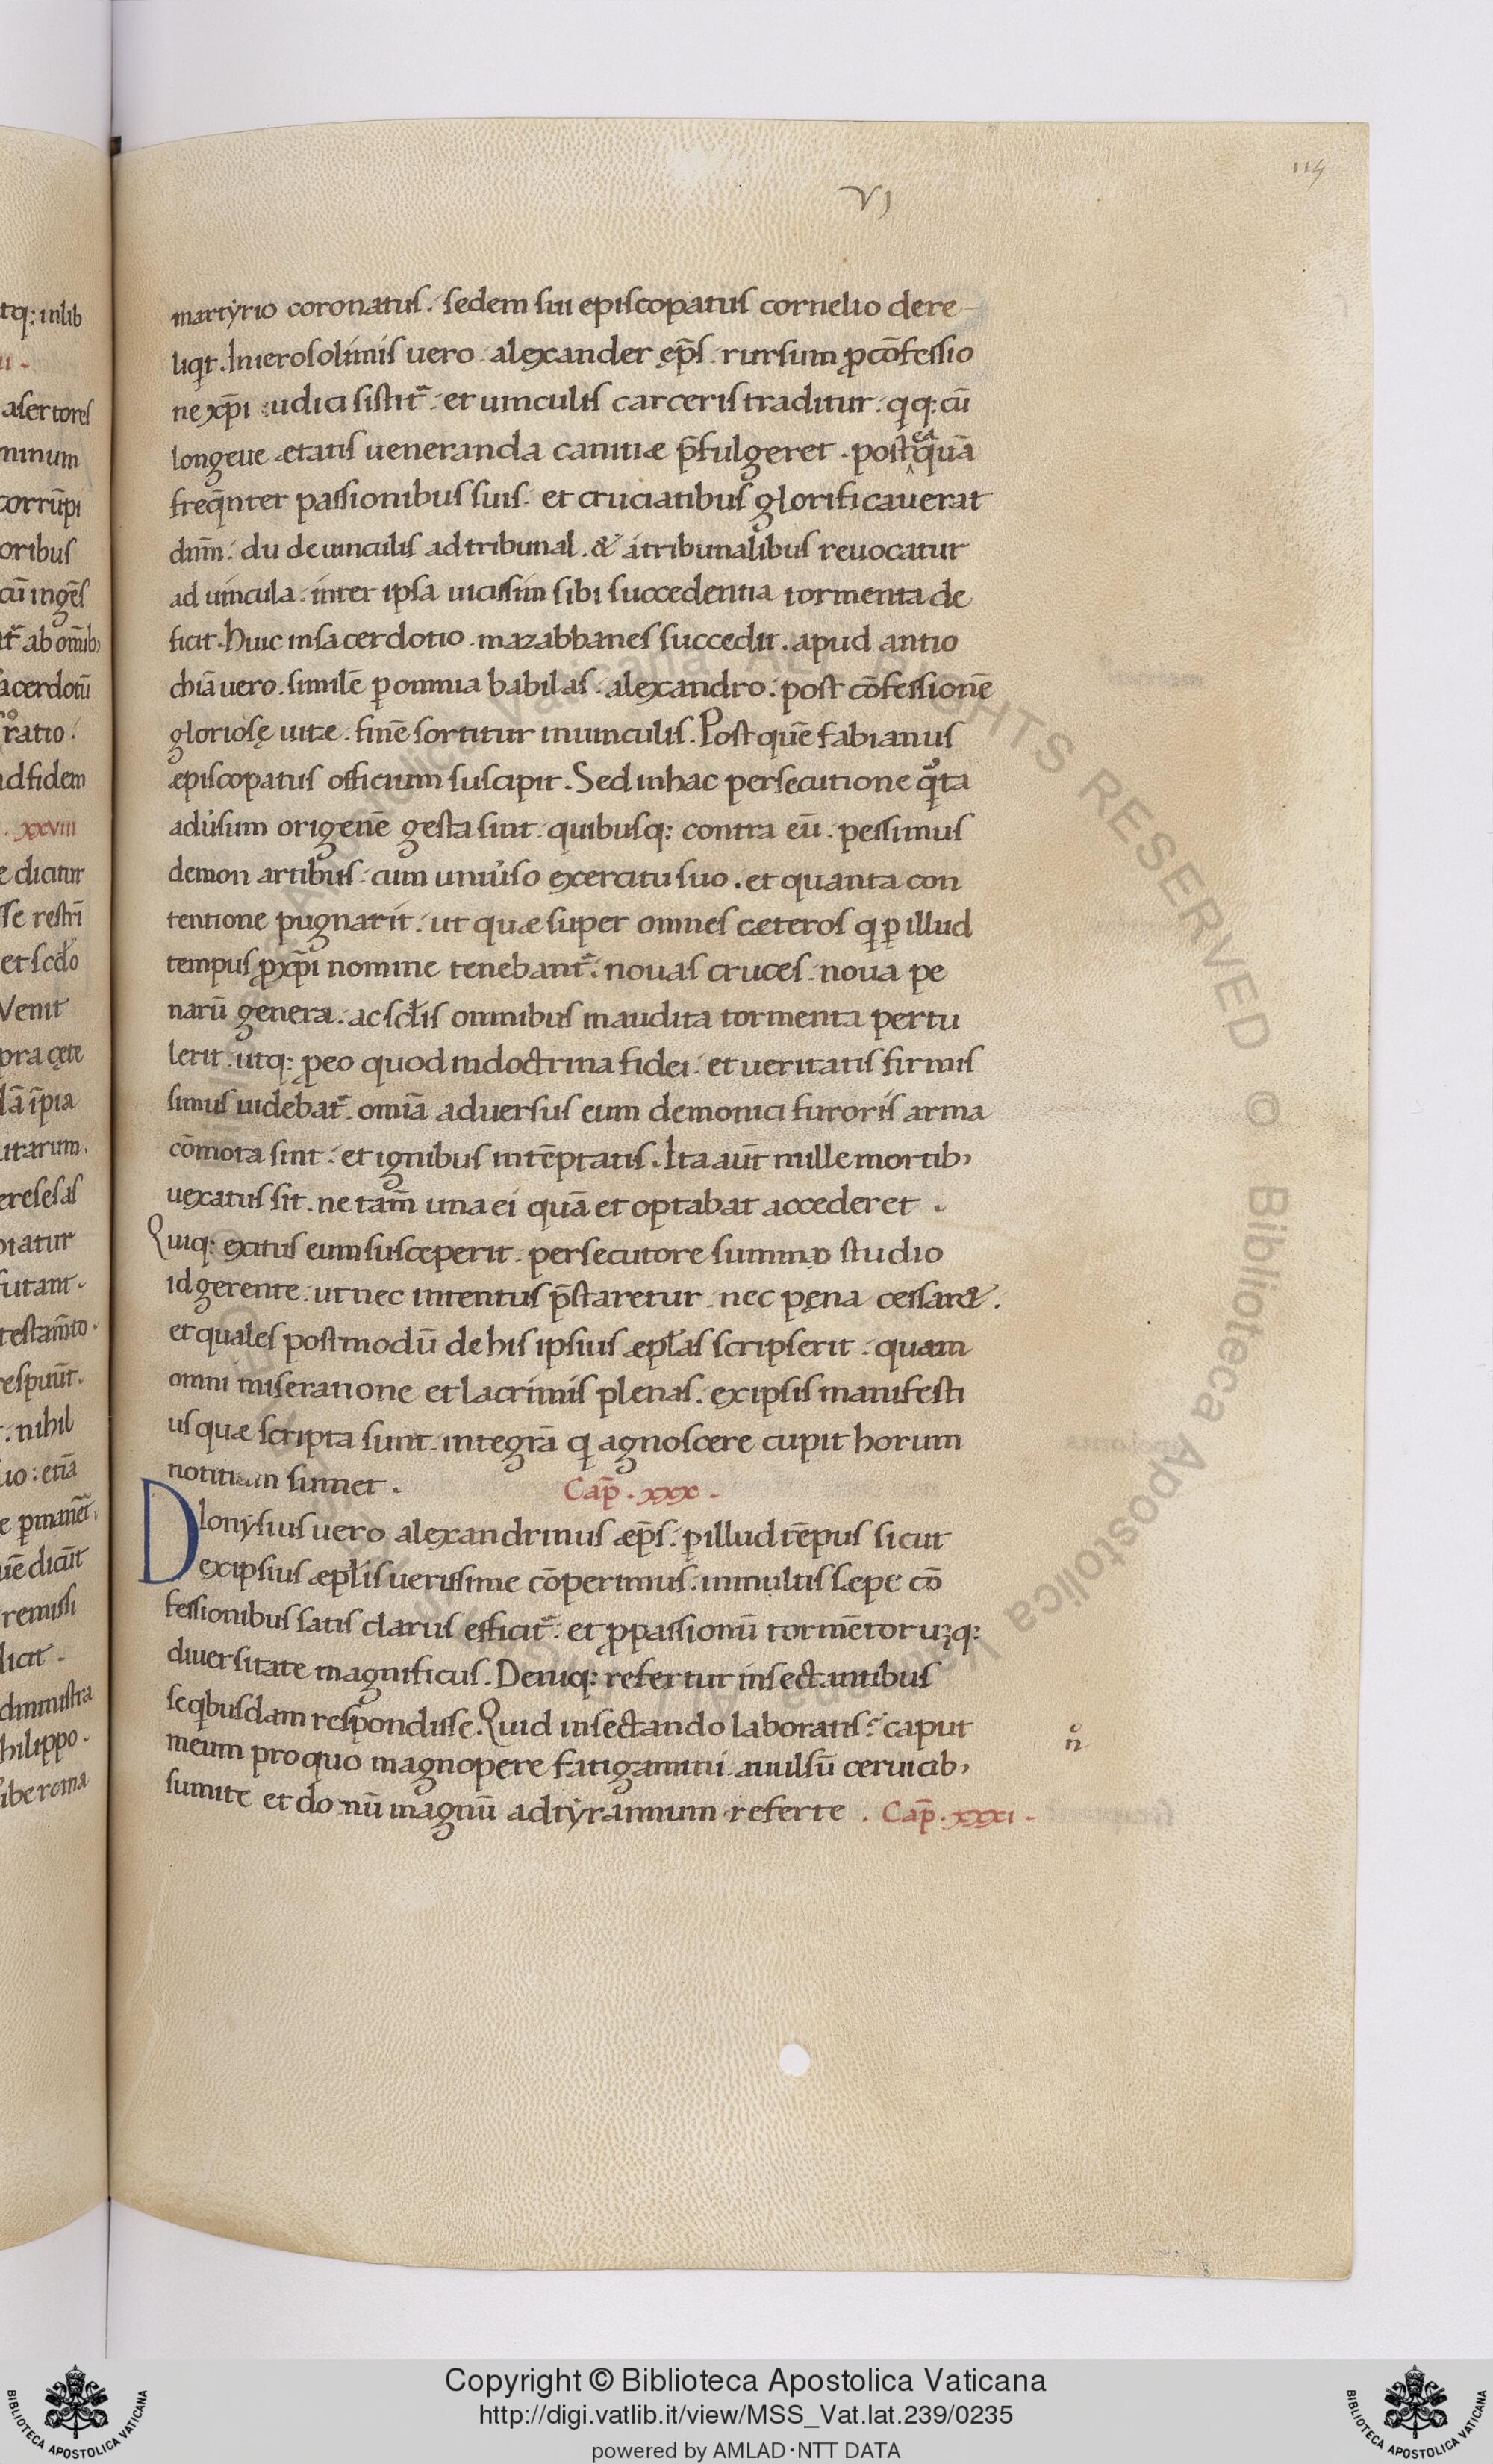 114
VI
martyrio coronatus. sedem sui episcopatus cornelio dere
liqt. Inierosolimis uero. alexander ep̄s. rursum ꝓcōfessio
ne xp̄i iudici sistit᷑. et uinculis carceris traditur. qq: cū
longeue ætatis ueneranda canitiæ p̄fulgeret. post ea quā
freq̄nter passionibus suis. et cruciatibus glorificauerat
dnm̄. du de uinculis ad tribunal. & a tribunalibus reuocatur
ad uincula. inter ipsa uicissim sibi succedentia tormenta de
ficit. huic in sacerdotio. mazabbanes succedit. apud antio
chiā uero. similē ꝑ omnia babilas. alexandro. post cōfessionē
gloriosę uitæ. finē sortitur inuinculis. Post quē fabianus
æpiscopatus officium suscipit. Sed inhac persecutione qͦta
adu̓sum origenē gesta sint. quibusq: contra eū. pessimus
demon artibus. cum uniu̓so exercitu suo. et quanta con
tentione pugnarit. ut quæ super omnes cæteros q ꝑ illud
tempus ꝓ xp̄i nomine tenebant᷑. nouas cruces. noua pe
narū genera. ac sclis omnibus inaudita tormenta pertu
lerit. utq: ꝑ eo quod indoctrina fidei. et ueritatis firmis
simus uidebat᷑. omīa aduersus eum demonici furoris arma
cōmota sint. et ignibus intēptatis. Ita aūt mille mortib;
uexatus sit. ne tam̄ una ei quā et optabat accederet.
Quiq: exitus eum susceperit. persecutore summo studio
id gerente. ut nec intentus p̄staretur. nec pęna cessar&.
et quales postmodū de his ipsius æpłas scripserit. quam
omni miseratione et lacrimis plenas. ex ipsis manifesti
us quæ scripta sunt. integrā q agnoscere cupit horum
notitiam sumet. Cap̄. xxx.
Dionysius uero alexandrinus æp̄s. ꝑ illud tēpus sicut
ex ipsius æpłis uerissime cōperimus. inmultis sæpe cō
fessionibus satis clarus efficit᷑. et ꝓ passionū tormētoruꝫq:
diuersitate magnificus. Deniq: refertur insectantibus
se qbusdam respondisse. Quid insectando laboratis? caput
meum pro quo magnopere fatigamini. auulsū ceruicib;
sumite et donū magnū ad tyrannum referte. Cap̄. xxxi.
Copyright © Biblioteca Apostolica Vaticana
http://digi.vatlib.it/view/MSS_Vat.lat.239/0235
powered by AMLAD·NTT DATA